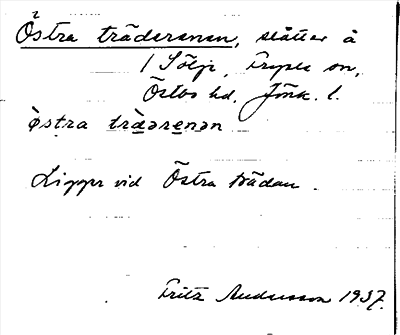 Östra träderenen, slåtter å
1 Sölje, Bryels sn,
Östbo hd, Jönk. l.
östra trädərenən
Ligger vid Östra trädan.
Fritz Andersson 1937.